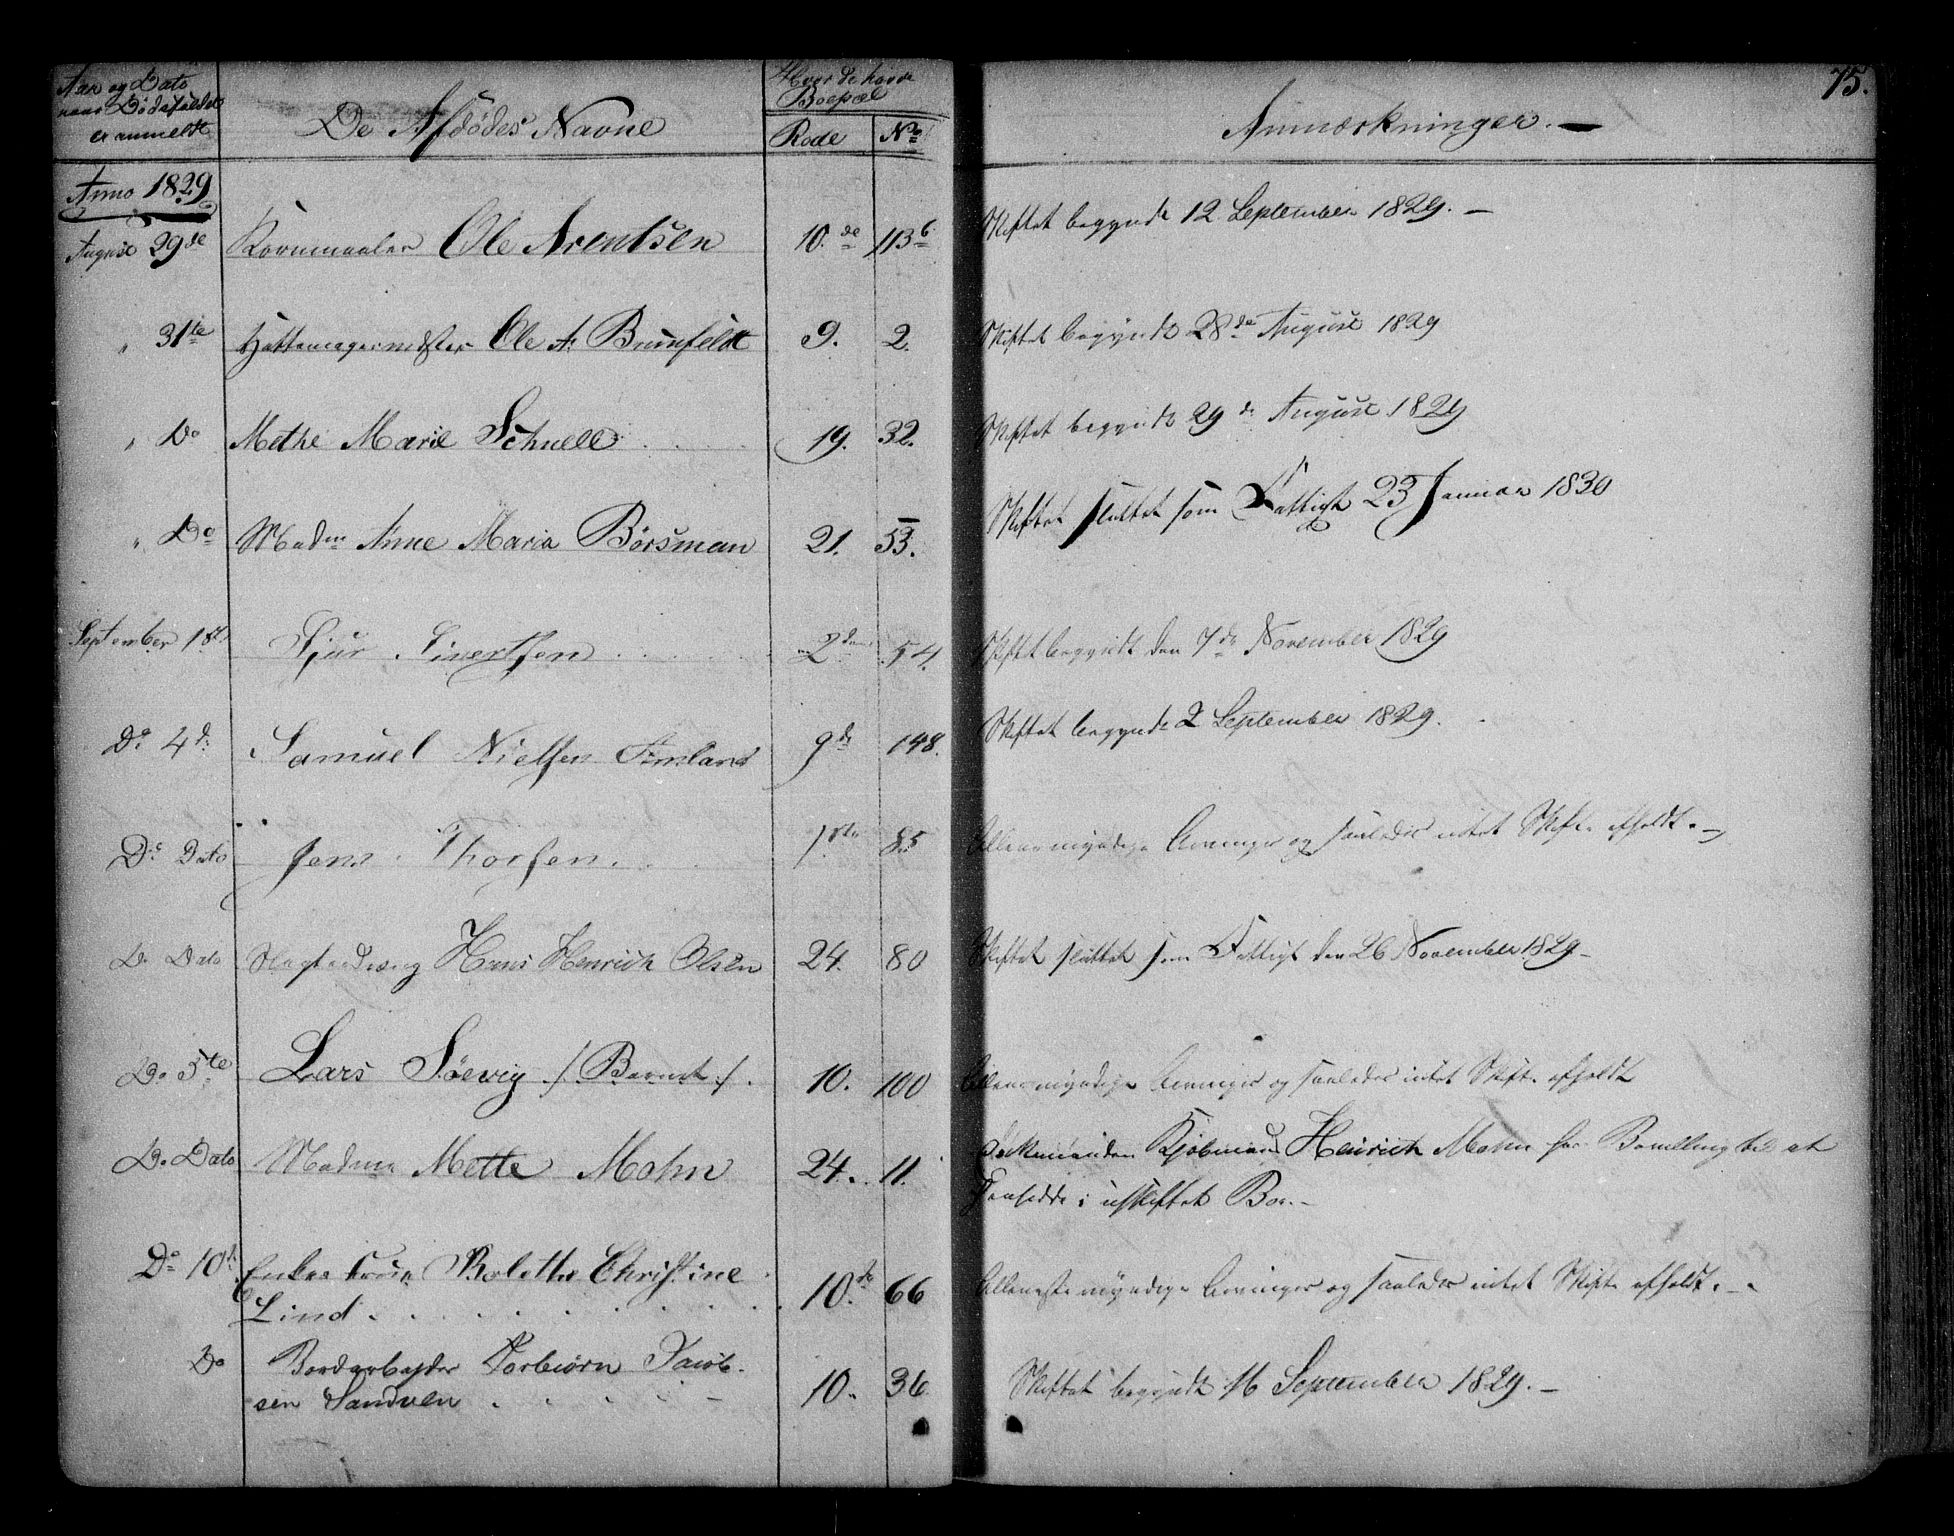 75.
Aar og Dato
naar Dødsfaldet
er anmeldt
De Afdødes Navne
Hvor de havde
Boepæl
Rode No
Anmærkninger. —
Anno 1829
August 29de Kornmaaler Ole Arentsen 10.de 113b Skiftet begyndt 12 September 1829. —
" 31te Hattemagermester Ole A. Brunfeldt 9. 2. Skiftet begyndt 28de August 1829
" Do Methe Marie Schnell 19. 32. Skiftet begyndt 29de August 1829
" Do Madme Anne Maria Börsman 21. 53. Skiftet sluttet som Fattigt 23 Januar 1830
September 1ste Sjur Sivertsen 2den 54. Skiftet begyndt den 7de November 1829
Do 4de Samuel Nielsen Amland 9de 148. Skiftet begyndt 2 September 1829.
Do Dato Jens Thorsen. 1ste 85 myndige Arvinger og saaledes intet Skifte afholdt. —
Do Dato Hans Henrich Olsen 24. 80 Skiftet sluttet som Fattigt den 26 November 1829 –
Do 5te Lars Söevig /: Barnet :/. 10. 100 myndige Arvinger og saaledes intet Skifte afholdt
Do Dato Madme Mette Mohn 24. 11. Enkemanden Kjøbmand Henrich Mohn har Bevilling til at
hensidde i uskiftet Boe. –
Do 10de Enkefrue Bolethe Christine
Lind . 10.de 66 Alleneste myndige Arvinger og saaledes intet Skifte afholdt. –
Do Bordarbejder Torbiörn Jacob-
sen Sandven 10. 36 Skiftet begyndt 16 September 1829. –